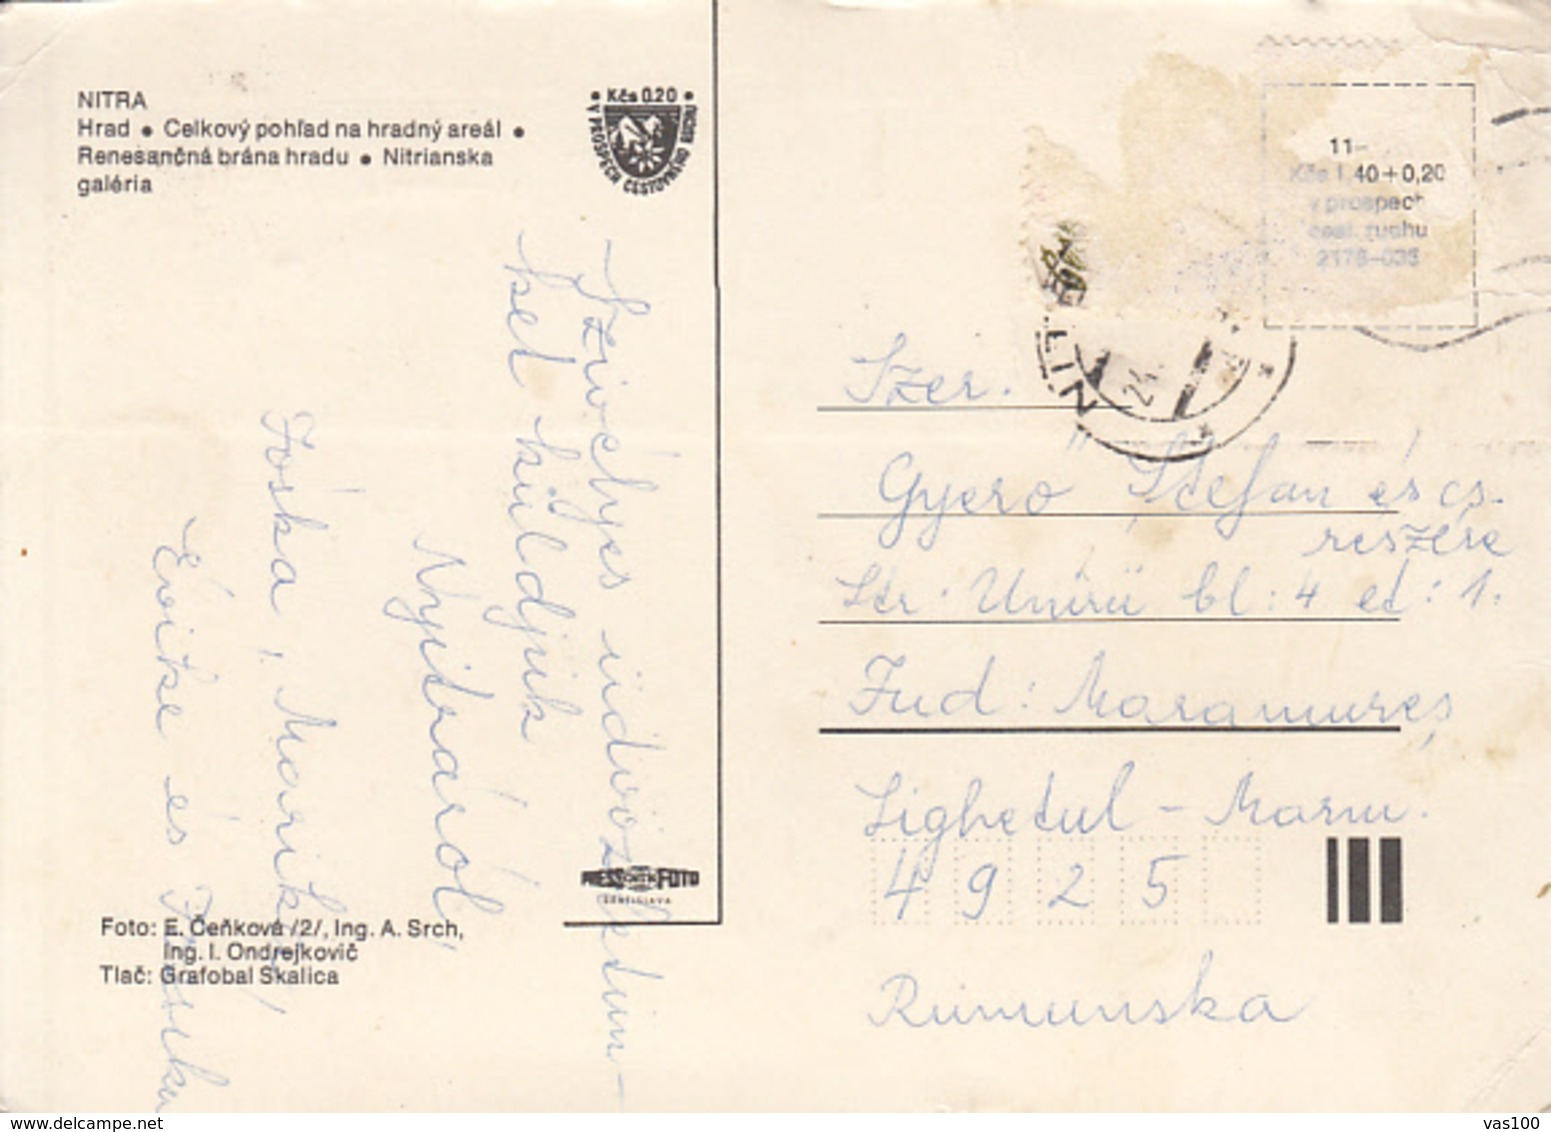 NITRA
Hrad • Celkový pohľad na hradný areál •
Renesančná brána hradu • Nitrianska
galéria
• Kčs 0.20 •
V PROSPECH CESTOVNÉHO RUCHU
Szivélyes üdvözletün-
ket küldjük
Nyitráról,
Jóska, Marika,
Évike és
PRESSFOTO
BRATISLAVA
Foto: E. Čeňková /2/, Ing. A. Srch,
Ing. I. Ondrejkovič
Tlač: Grafobal Skalica
11–
Kčs 1,40 + 0,20
v prospech
cest. ruchu
2178–035
24.
Szer.
Gyerő Ștefan és cs.
részére
Str. Unirii bl: 4 et: 1.
Jud: Maramureș
Sighetul - Marm.
4925
Rumunska
delcampe.net
vas100